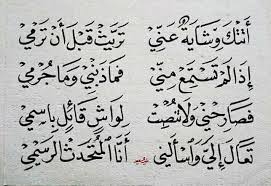 أَتَتْكَ وِشَايَةٌ عَنِّي تَرَيَّثْ قَبْلَ أَنْ تَرْمِي
إِذَا لَمْ تَسْتَمِعْ مِنِّي فَمَا ذَنْبِي وَمَا جُرْمِي
فَصَارِحْنِي وَلَا تُنْصِتْ لِوَاشٍ قَائِلٍ بِاسْمِي
تَعَالَ إِلَيَّ وَاسْأَلْنِي أَنَا الْمُتَحَدِّثُ الرَّسْمِي